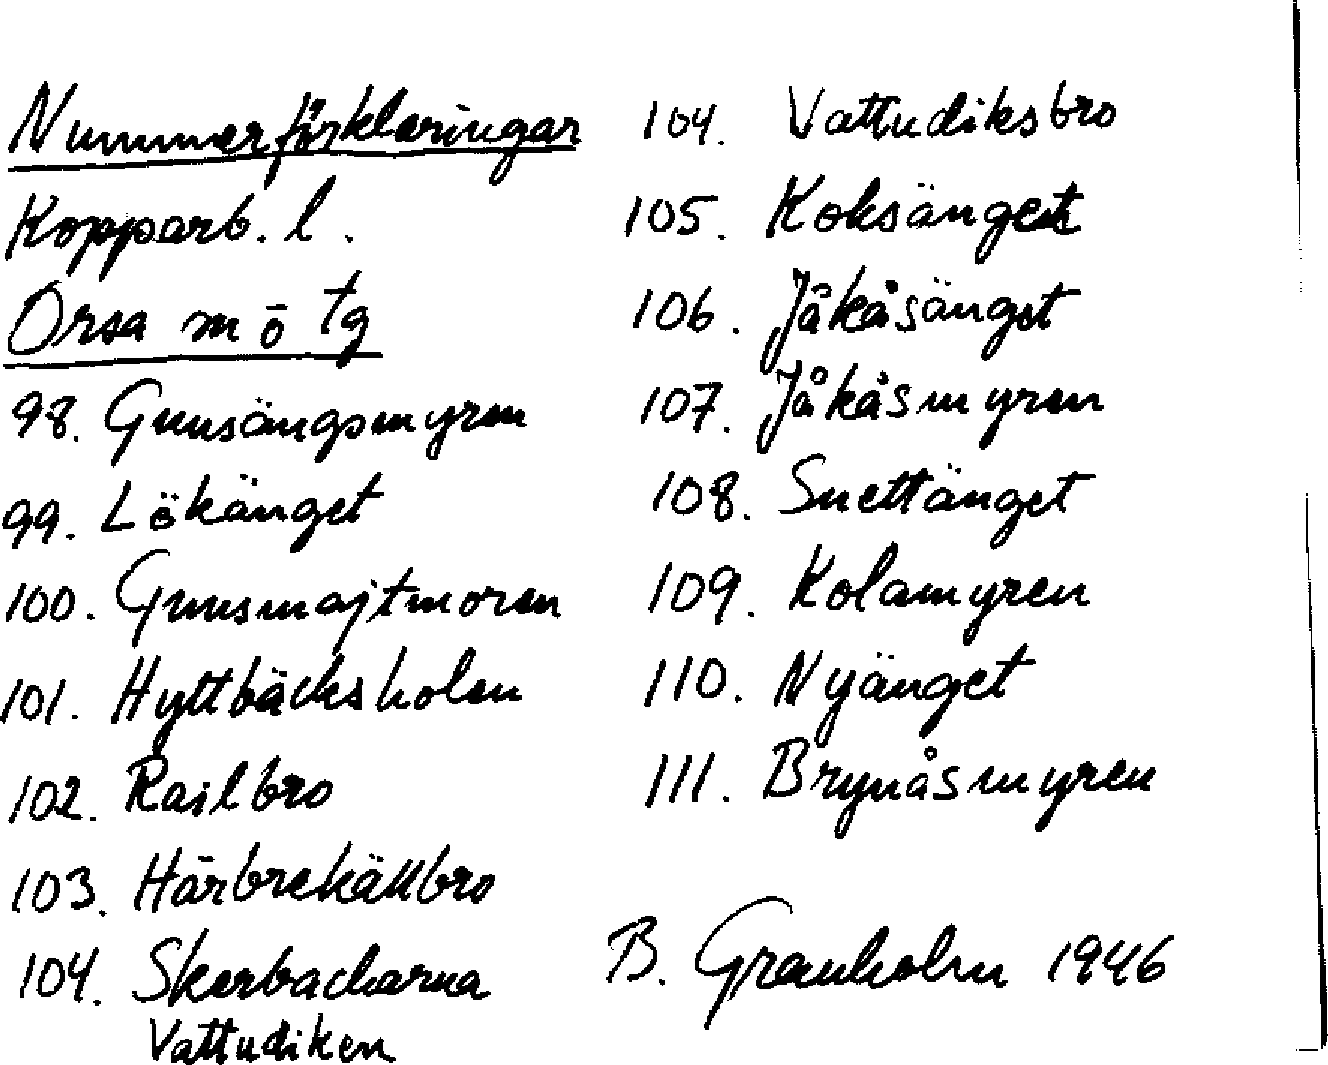 Nummerförklaringar
Kopparb. l.
Orsa m ö tg
98. Gunsängsmyren
99. Lökänget
100. Gunsmajtmoren
101. Hyttbäcksholen
102. Rajlbro
103. Härbrekällbro
104. Skerbackarna
Vattudiken
104. Vattudiksbro
105. Koksänget
106. Jåkåsänget
107. Jåkåsmyren
108. Snettänget
109. Kolamyren
110. Nyänget
111. Brynåsmyren
B. Granholm 1946